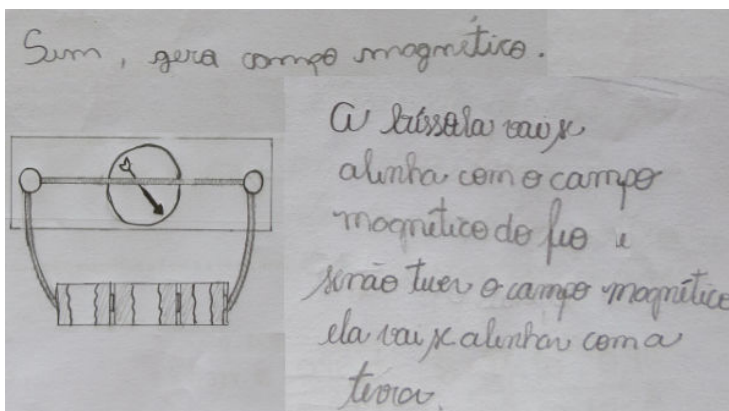 Sim, gera campo magnético.
A bússola vai se
alinha com o campo
magnético do fio e
se não tiver o campo magnético
ela vai se alinhar com a
terra.